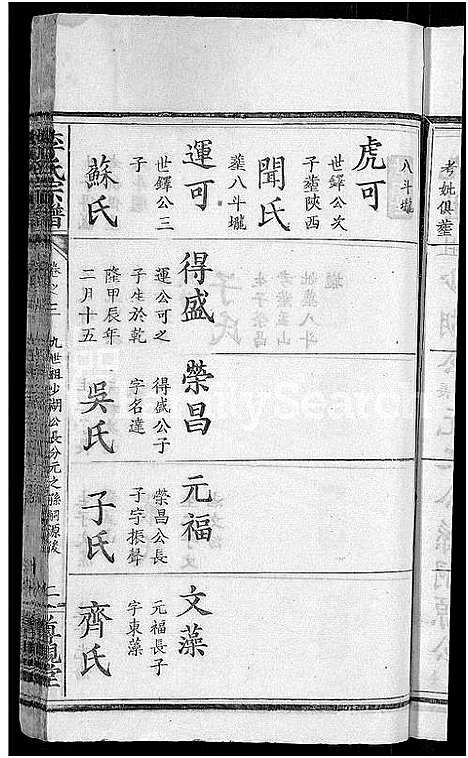 考妣俱葬
八斗壠
虎可
世鐸公次
子葬陝西
聞氏
葬八斗壠
運可
世鐸公三
子
蘇氏
得盛
運公可之
子生於乾
隆甲辰年
二月十五
榮昌
得盛公子
字名達
吳氏
元福
榮昌公長
子字振聲
子氏
文藻
元福長子
字東藻
齊氏
李氏宗譜
九世祖少湖公長分元之孫嗣源後